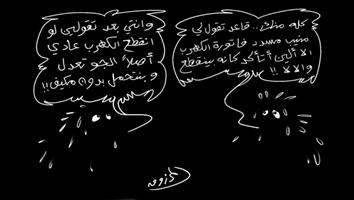 كله منك.. قاعد تقول لي
منيب مسدد فاتورة الكهرب
الا أبي أتأكد كانه بينقطع
والا لا !!
وانتي بعد تقولين لو
انقطع الكهرب عادي
أصلاً الجو تعدل
و بنتحمل بدون مكيف!!